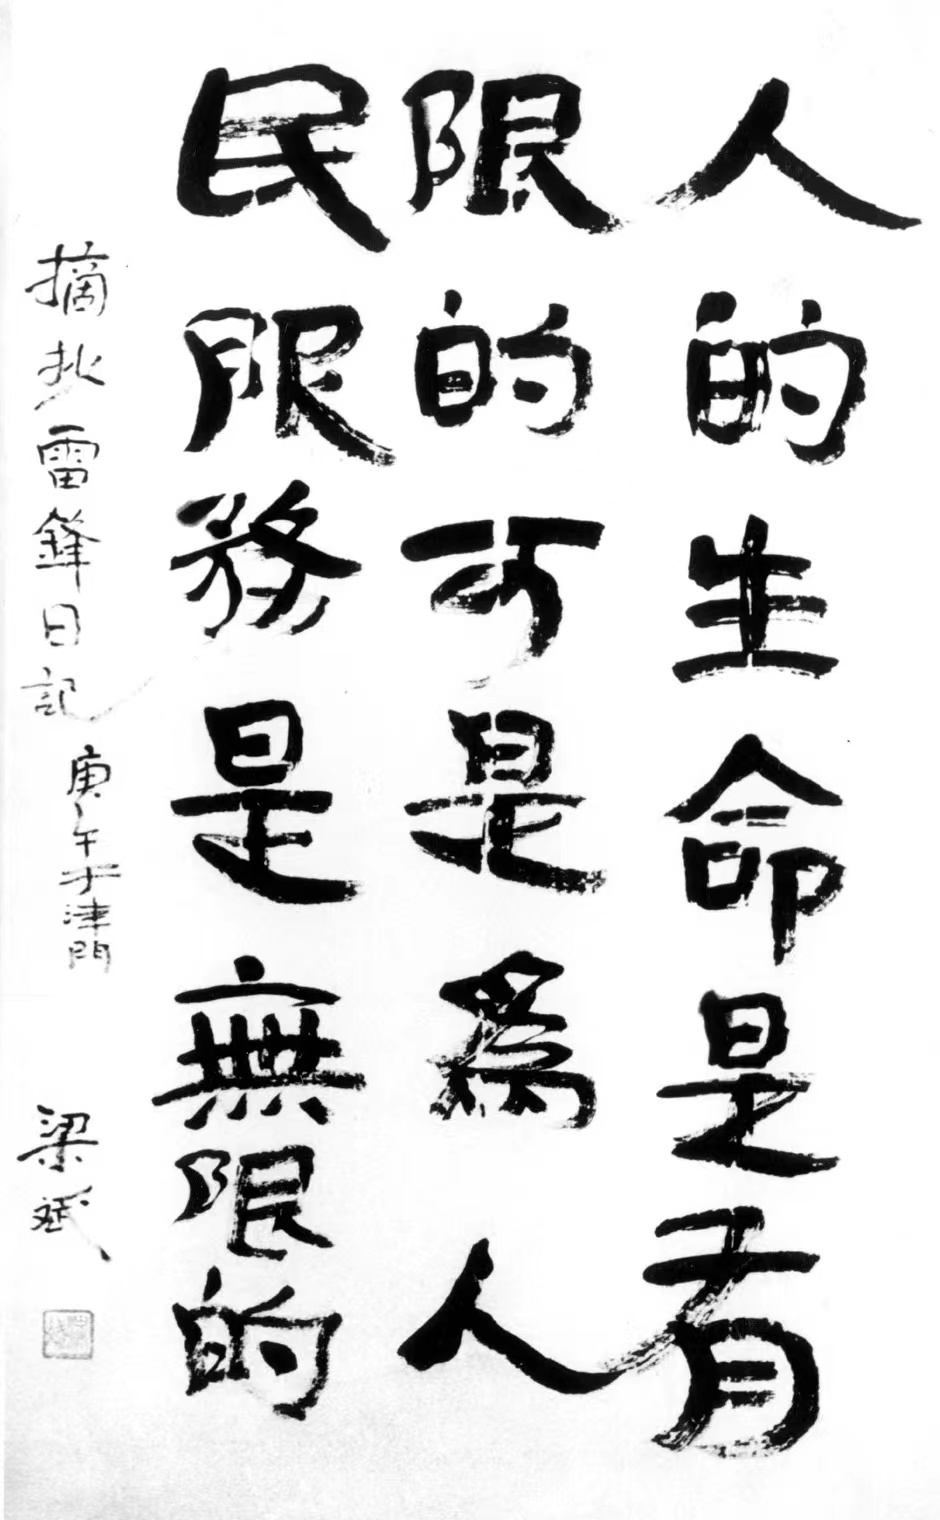 人的生命是有
限的可是為人
民服務是無限的
摘抄雷鋒日記
庚午于津門
梁斌